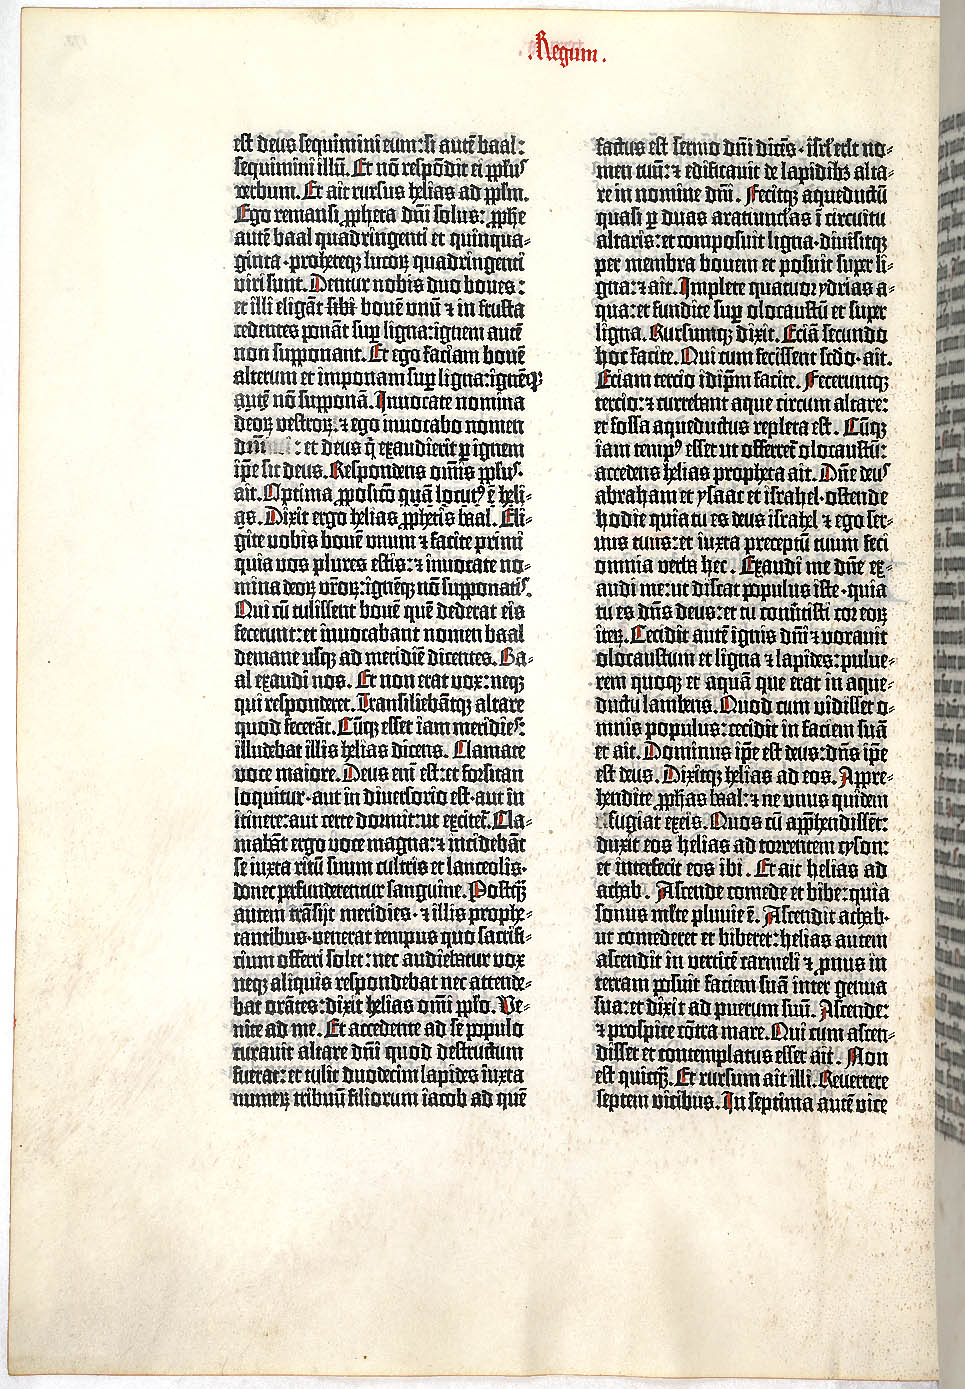 . Regum .
est deus sequimini eum: si autē baal:
sequimini illū. Et nō respōdit ei ꝓplus
verbum. Et ait rursus helias ad ꝓplm.
Ego remansi ꝓpheta dñi solus: ꝓphe
autē baal quadringenti et quinqua-
ginta · prophetęqꝫ lucoꝝ quadringenti
viri sunt. Dentur nobis duo boves:
et illi eligāt sibi bovē unū ⁊ in frusta
cedentes ponāt suꝑ ligna: ignem autē
non supponant. Et ego faciam bovē
alterum et imponam suꝑ ligna: ignēqꝫ
autē nō supponā. Invocate nomina
deoꝝ vestroꝝ. ⁊ ego invocabo nomen
dñi : et deus q̄ exaudierit ꝑ ignem
iꝑe sit deus. Respondens om̄is ꝓplus.
ait. Optima ꝓposicō quā locutꝰ ē heli-
as. Dixit ergo helias ꝓphetis baal. Eli-
gite vobis bovē unum ⁊ facite primi
quia vos plures estis: ⁊ invocate no-
mina deoꝝ vr̄oꝝ: ignēqꝫ nō supponatis.
Qui cū tulissent bovē quē dederat eis
fecerunt: et invocabant nomen baal
demane usqꝫ ad meridiē dicentes. Ba-
al exaudi nos. Et non erat vox: neqꝫ
qui responderet. Transiliebātqꝫ altare
quod fecerāt. Cūqꝫ esset iam meridies:
illudebat illis helias dicens. Clamate
voce maiore. Deus eni est: et forsitan
loquitur · aut in diversorio est · aut in
itinere: aut certe dormit: ut excitet᷑. Cla-
mabāt ergo voce magna: ⁊ incidebāt
se iuxta ritū suum cultris et lanceolis ·
donec perfunderentur sanguine. Postqꝫ̄
autem trāsijt meridies · ⁊ illis prophe-
tantibus · venerat tempus quo sacrifi-
cium offerri solet: nec audiebatur vox
neqꝫ aliquis respondebat nec attende-
bat orātes: dixit helias om̄i ꝓplo. Ve-
nite ad me. Et accedente ad se populo
curavit altare dñi quod destructum
fuerat: et tulit duodecim lapides iuxta
numeꝝ tribuū filiorum iacob ad quē
factus est sermo dñi dicēs · isrl erit no-
men tuū: ⁊ edificavit de lapidibꝫ alta-
re in nomine dñi. Fecitqꝫ aqueductū
quasi ꝑ duas aratiunclas ī circuitu
altaris: et composuit ligna · divisitqꝫ
per membra bovem et posuit super li-
gna: ⁊ ait. Implete quatuor ydrias a-
qua: et fundite suꝑ olocaustū et super
ligna. Rursumqꝫ dixit. Eciā secundo
hoc facite. Qui cum fecissent scdo · ait.
Eciam tercio idip̄m facite. Feceruntqꝫ
tercio: ⁊ currebant aque circum altare:
et fossa aqueductus repleta est. Cūqꝫ
iam tempꝰ esset ut offerret᷑ olocaustū:
accedens helias propheta ait. Dñe deus
abraham et ysaac et israhel · ostende
hodie quia tu es deus israhel ⁊ ego ser-
vus tuus: et iuxta preceptū tuum feci
omnia verba hec. Exaudi me dñe ex-
audi me: ut discat populus iste · quia
tu es dñs deus: et tu convertisti cor eoꝝ
iteꝝ. Cecidit autē ignis dñi ⁊ voravit
olocaustum et ligna ⁊ lapides: pulve-
rem quoqꝫ et aquā que erat in aque-
ductu lambens. Quod cum vidisset o-
mnis populus: cecidit in faciem suā
et ait. Dominus iꝑe est deus: dñs iꝑe
est deus. Dixitqꝫ helias ad eos. Appre-
hendite ꝓphas baal: ⁊ ne unus quidem
fugiat ex eis. Quos cū apphendissēt:
duxit eos helias ad torrentem cyson:
et interfecit eos ibi. Et ait helias ad
achab. Ascende comede et bibe: quia
sonus mlte pluvie ē. Ascendit achab ·
ut comederet et biberet: helias autem
ascendit in verticē carmeli ⁊ ꝓnus in
terram posuit faciem suā inter genua
sua: et dixit ad puerum suū. Ascende:
⁊ prospice cōtra mare. Qui cum ascen-
disset et contemplatus esset ait. Non
est quicqꝫ̄. Et rursum ait illi. Revertere
septem vicibus. In septima autē vice